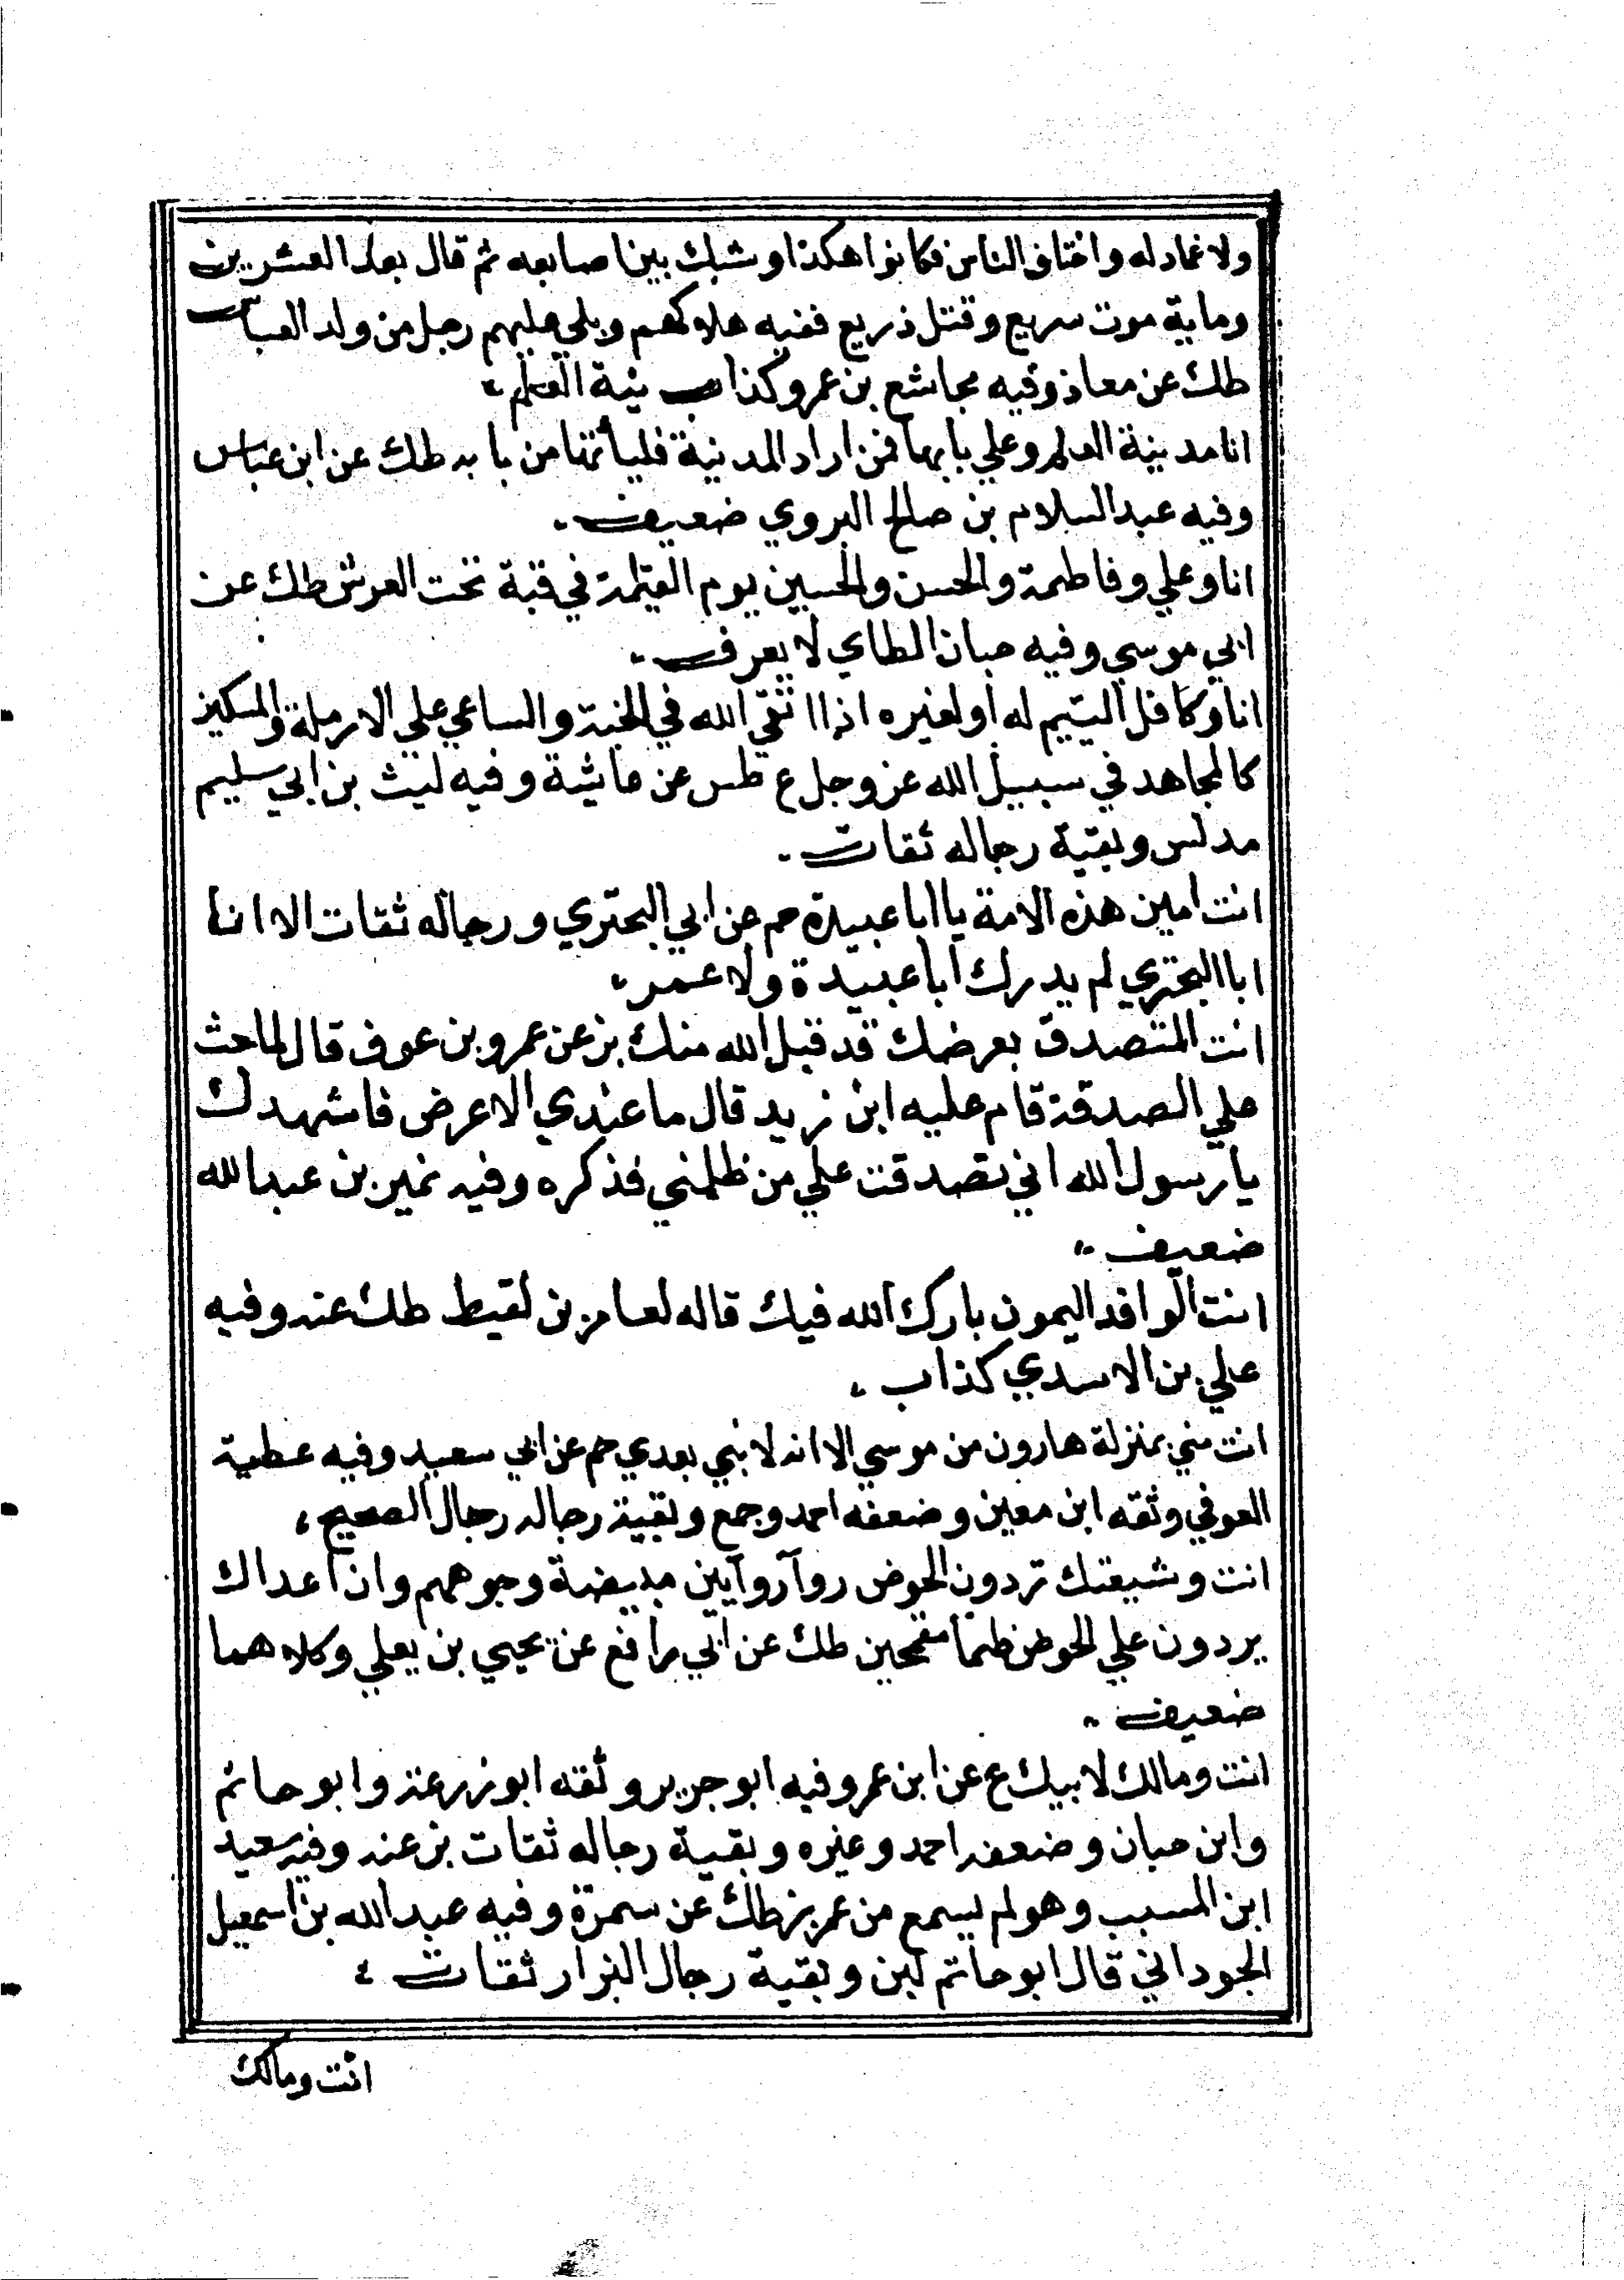 ولا غماد له واختلف الناس فكانوا هكذا وشبك بين اصابعه ثم قال بعد العشرين
وماية موت سريع وقتل ذريع ففيه هلاكهم ويلي عليهم رجل من ولد العباس
طك عن معاذ وفيه مجاشع بن عمرو كذاب ينية العلم
انا مدينة العلم وعلي بابها فمن اراد المدينة فلياتها من بابه طك عن ابن عباس
وفيه عبد السلام بن صالح البروي ضعيف
انا وعلي وفاطمة والحسن والحسين يوم القيامة في قبة تحت العرش طك عن
ابي موسي وفيه حبان الطاي لا يعرف
انا وكافل اليتيم له او لغيره اذا اتقي الله في الجنة والساعي علي الارملة والمسكين
كالمجاهد في سبيل الله عز وجل ع طس عن عايشة وفيه ليث بن ابي سليم
مدلس وبقية رجاله ثقات
انت امين هذه الامة يا ابا عبيدة حم عن ابي البحتري ورجاله ثقات الا ان
ابا البختري لم يدرك ابا عبيدة ولا عمر
انت المتصدق بعرضك قد قبل الله منك بز عن عمرو بن عوف قال لما حث
علي الصدقة قام عليه ابن زيد قال ما عندي الا عرضي فاشهدك
يا رسول الله اني تصدقت علي من ظلمني فذكره وفيه نمير بن عبد الله
ضعيف
انت الوافد اليمون بارك الله فيك قاله لعامر بن لقيط طك عنه وفيه
علي بن الاسدي كذاب
انت مني بمنزلة هارون من موسي الا انه لا نبي بعدي حم عن ابي سعيد وفيه عطية
العوفي وثقه ابن معين وضعفه احمد وجمع وبقية رجاله رجال الصحيح
انت وشيعتك تردون الحوض روآ روآيين مبيضة وجوههم وان اعداك
يردون علي الحوض ظمآ مقمحين طك عن ابي رافع عن يحيي بن يعلي وكلاهما
ضعيف
انت ومالك لابيك ع عن ابن عمر وفيه ابو حريز وثقه ابو زرعة وابو حاتم
وابن حبان وضعفه احمد وغيره وبقية رجاله ثقات بز عنه وفيه سعيد
ابن المسبب وهو لم يسمع من عمر بز طك عن سمرة وفيه عبد الله بن اسمعيل
الجوداني قال ابو حاتم لين وبقية رجال البزار ثقات
انت ومالك